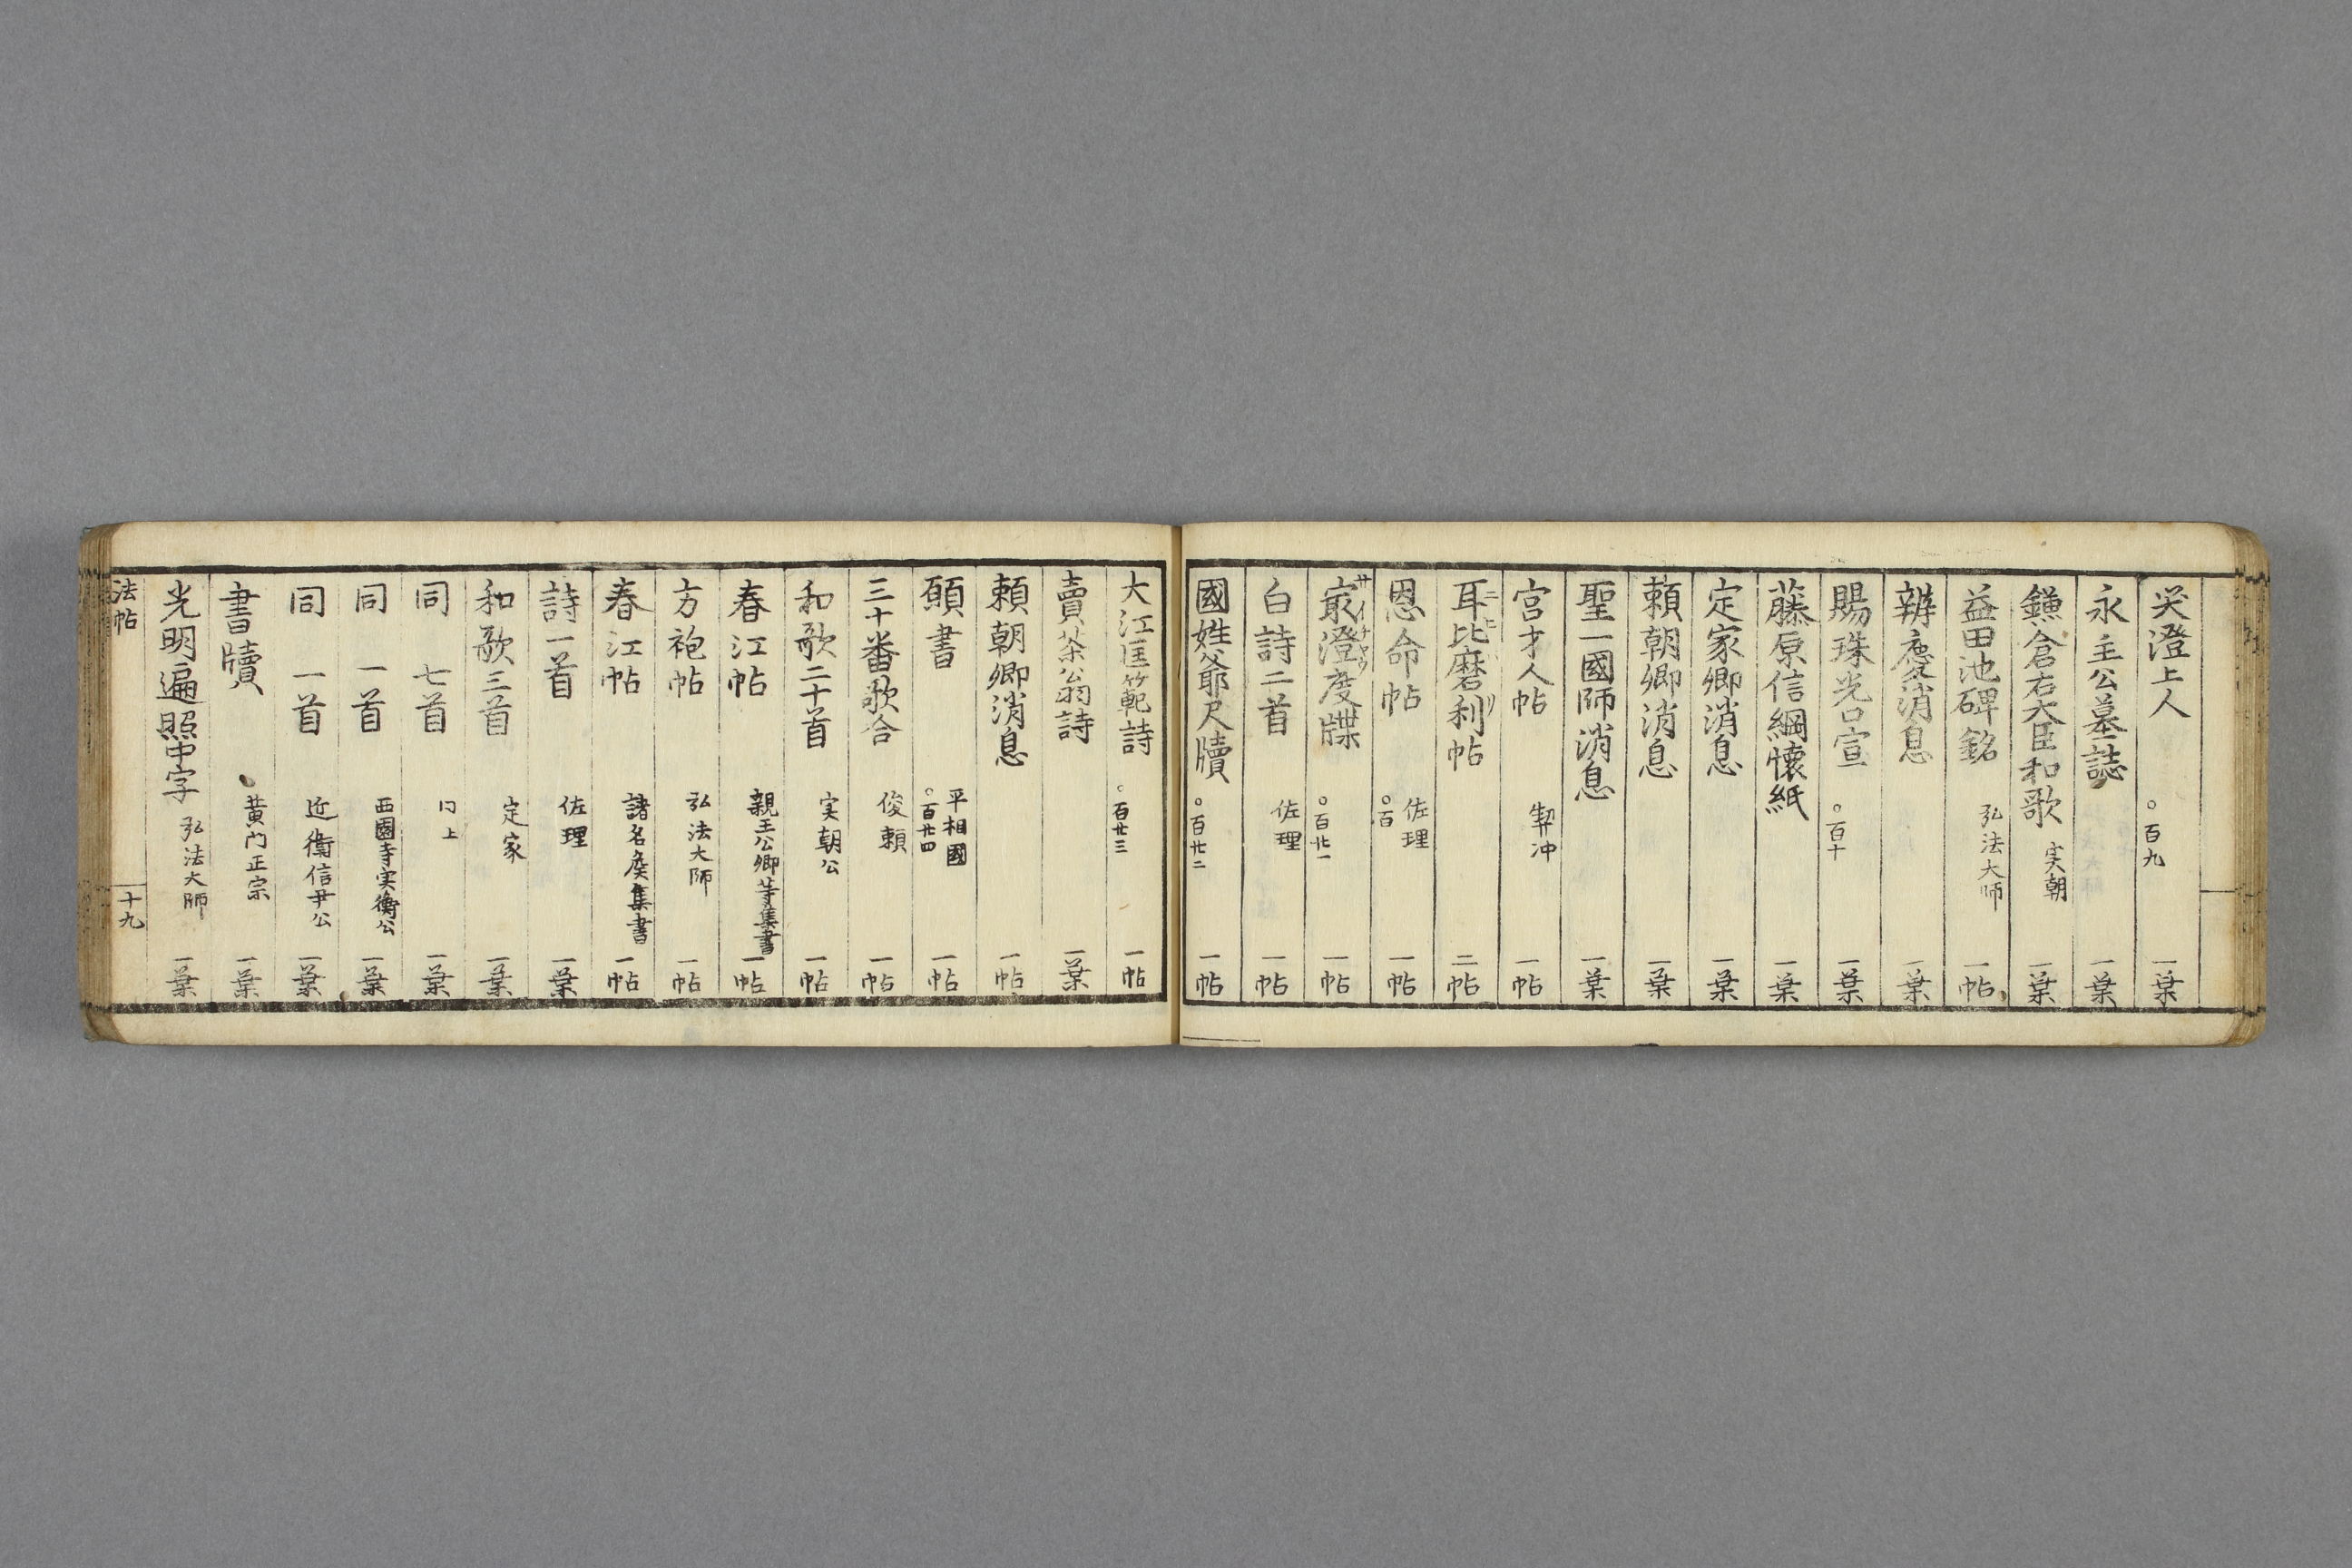 哭澄上人 ○百九 一葉
永主公墓誌 一葉
鎌倉右大臣和歌 実朝 一葉
益田池碑銘 弘法大师 一帖
辨慶消息 一葉
賜珠光口宣 ○百十 一葉
藤原信綱懐紙 一葉
定家卿消息 一葉
頼朝卿消息 一葉
聖一國師消息 一葉
宮才人帖 契冲 一帖
耳比磨利帖 二帖
恩命帖 佐理 ○百 一帖
㝡澄度牒 ○百廿一 一帖
白詩二首 佐理 一帖
國姓爺尺牘 ○百廿二 一帖
大江匡範詩 ○百廿三 一帖
賣茶翁詩 一葉
頼朝卿消息 一帖
願書 平相國 ○百廿四 一帖
三十番歌合 俊頼 一帖
和歌二十首 実朝公 一帖
春江帖 親王公卿等集書 一帖
方袍帖 弘法大师 一帖
春江帖 諸名矦集書 一帖
詩一首 佐理 一葉
和歌三首 定家 一葉
同 七首 同上 一葉
同 一首 西園寺実衡公 一葉
同 一首 近衞信尹公 一葉
書牘 黄门正宗 一葉
光明遍照中字 弘法大师 一葉
法帖 十九